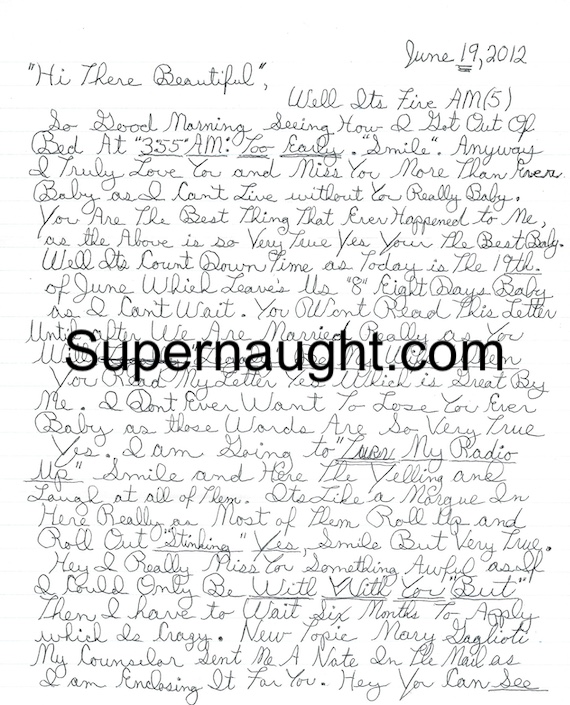 June 19, 2012
"Hi There Beautiful",
Well Its Five AM(5)
So Good Morning Seeing How I Got Out Of
Bed At "355" AM: Too Early. "Smile". Anyway
I Truly Love You and Miss You More Than Ever
Baby as I Cant Live without You Really Baby.
You Are The Best Thing That Ever Happened to Me,
as the Above is so Very True Yes Your The Best Baby.
Well Its Count Down Time as Today is The 19th.
of June Which Leaves Us "8" Eight Days Baby
as I Cant Wait. You Wont Read This Letter
Until after We Are Married Really as You
Supernaught.com
You Read My Letter Yes Which is Great By
Me. I Dont Ever Want To Lose You Ever
Baby as those Words Are So Very True
Yes. I am Going to "Turn My Radio
Up" Smile and Here The Yelling and
Laugh at all of Them. Its Like a Morgue In
Here Really as Most of Them Roll Up and
Roll Out "Stinking" Yes, Smile But Very True.
Hey I Really Miss You Something Awful as If
I Could Only Be With With You "But"
Then I have to Wait Six Months To Apply
which Is Crazy. New Topic Mary Gaglioti
My Counselor Sent Me A Note In The Mail as
I am Enclosing It For You. Hey You Can See